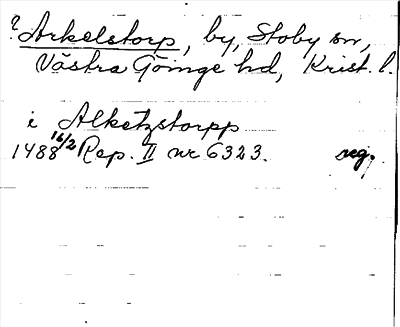 ? Arkelstorp, by, Stoby sn,
Västra Göinge hd, Krist. l.
i Alketzstorpp
1488 16/2 Rep. II nr 6323. reg.